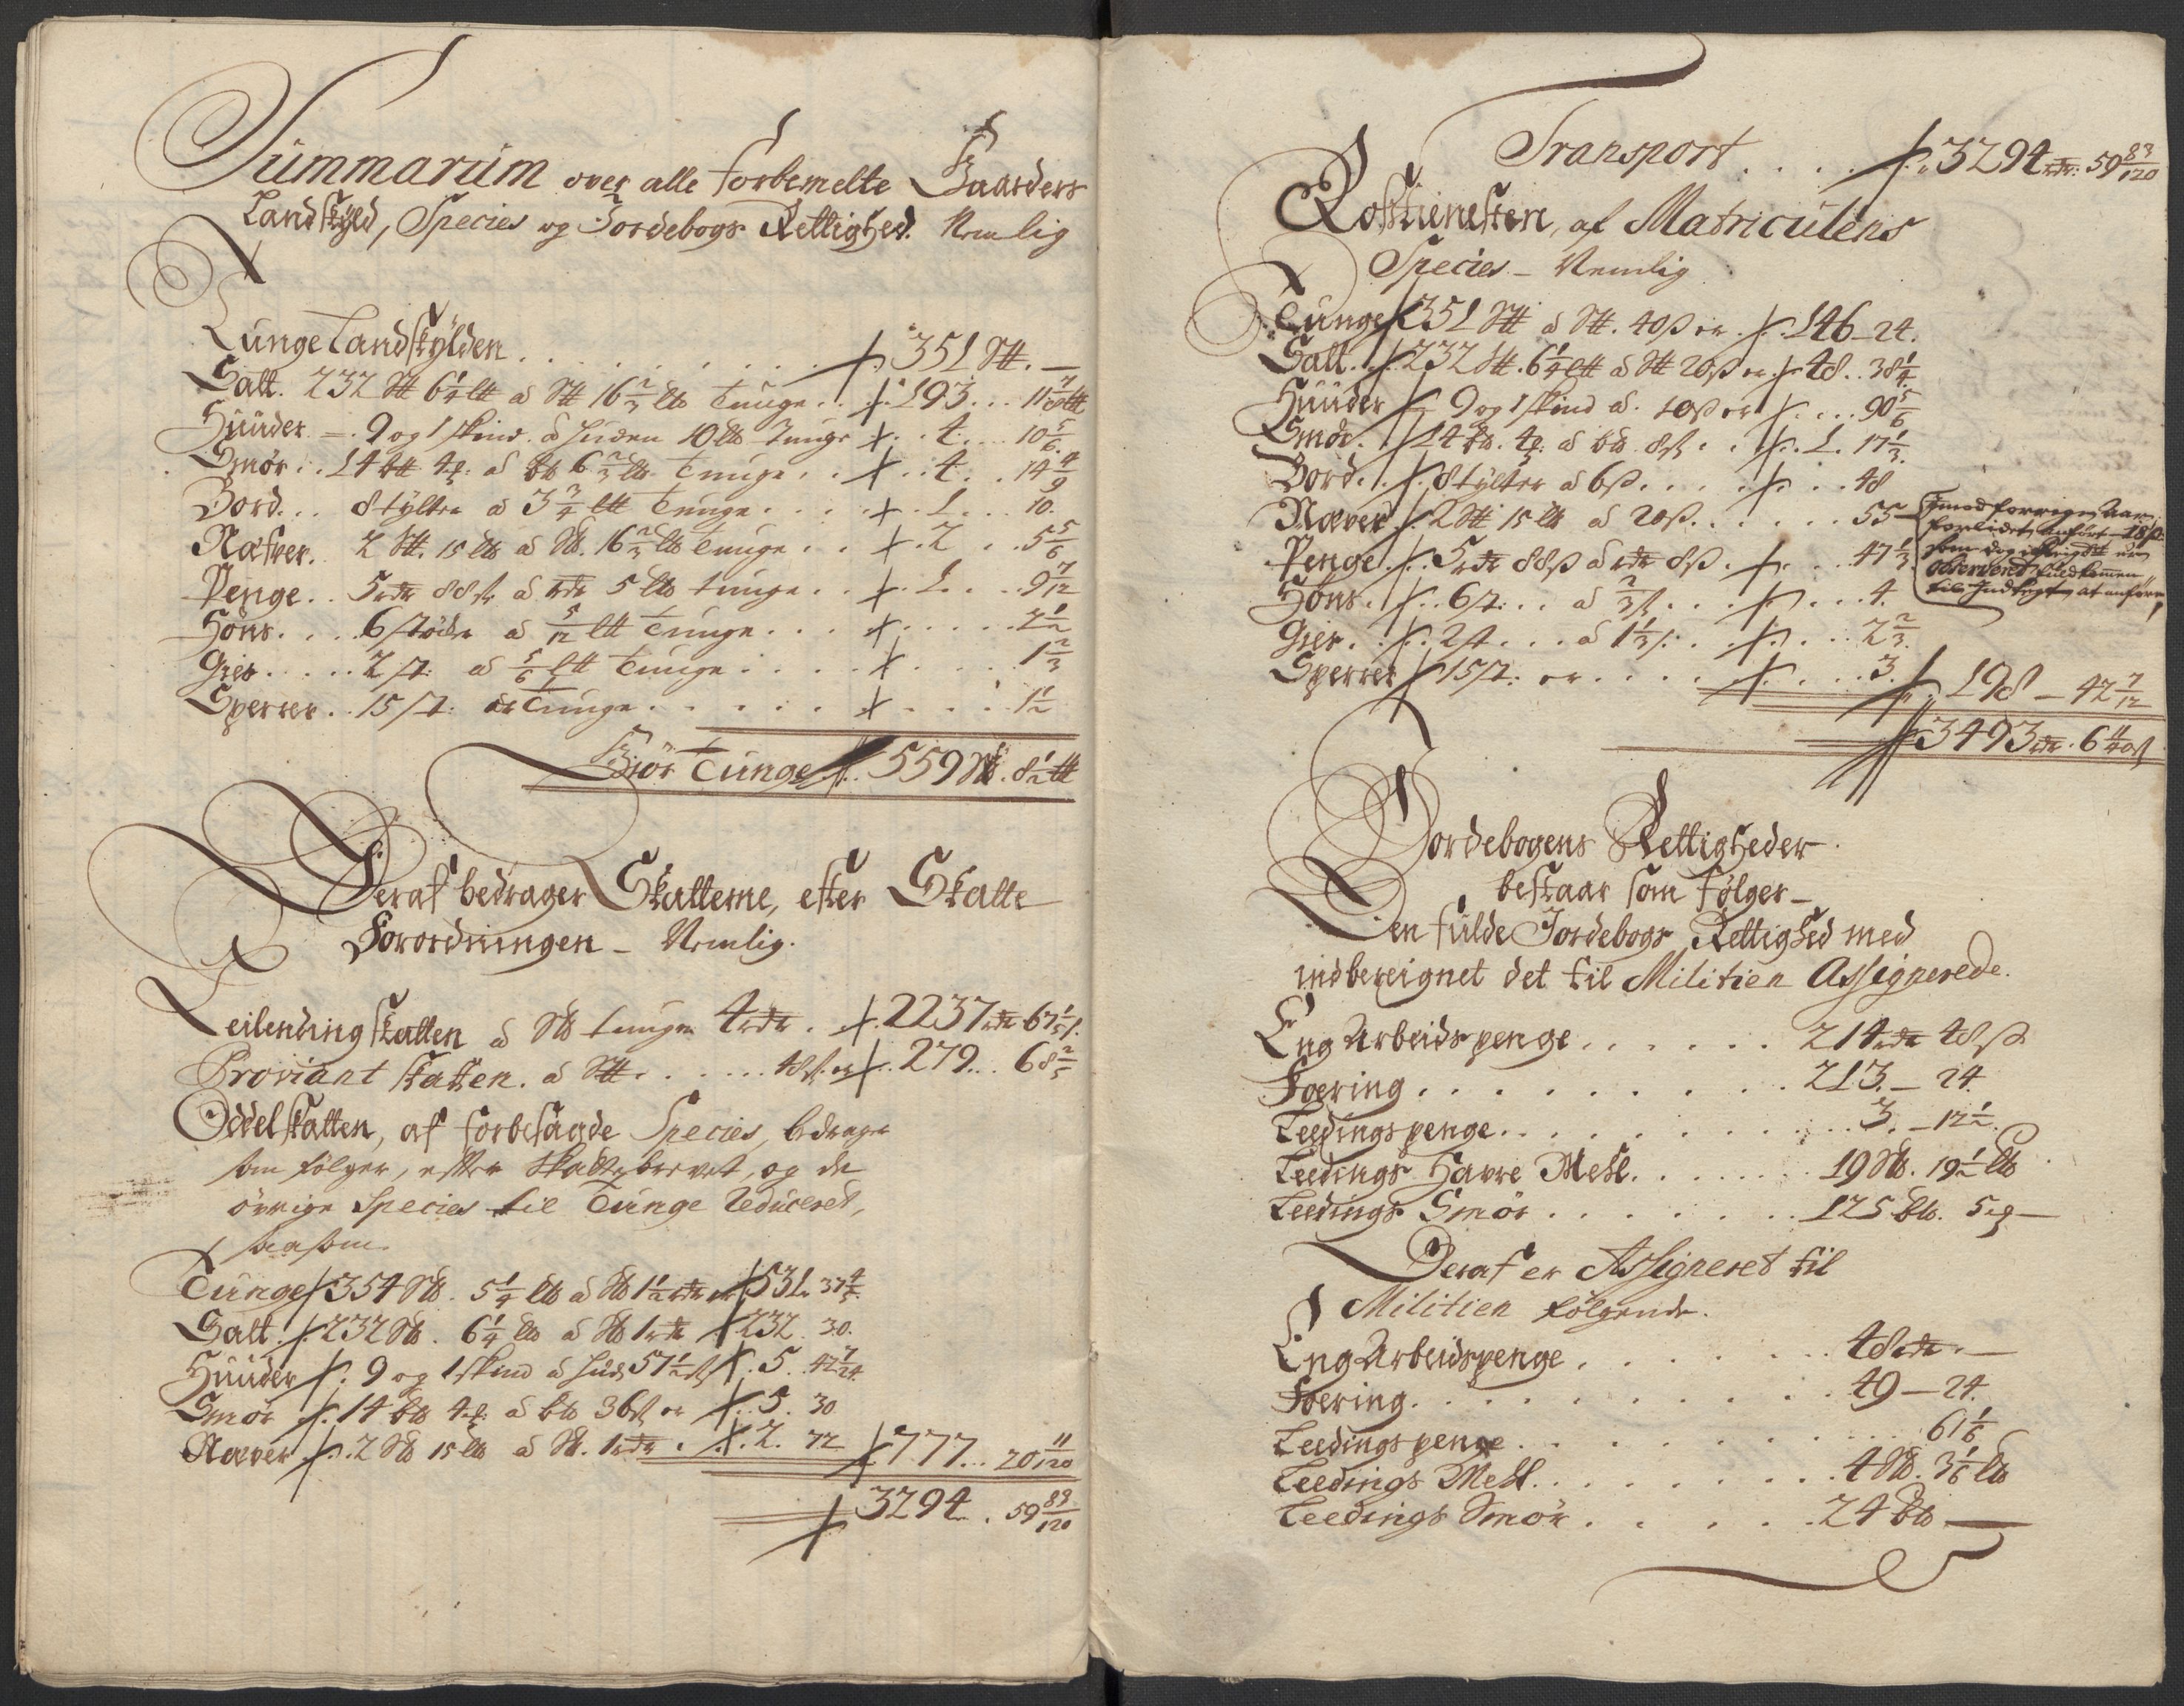 Summarum over alle forbemelte Gaarders
Landskyld, Species og Jordebogs Rettighed. Nemlig
Tunge Landskylden . . . 351 St. —
Salt. 232 St 6 1/4 lt a St 16 2/3 lb Tunge . . 193 . . . 11 7/8 lt
Huuder — 9 og 1 skind a Huden 10 lb Tunge . . 4 . . . 10 5/6
Smør . . 14 bt 4 a bt 6 2/3 lb Tunge . . 4 . . 14 4/9
Bord . . . 8 tylter a 3 3/4 lt Tunge . . . 1 . . . 10.
Næfver. 2 St. 15 lb a St. 16 2/3 lb Tunge . . 2 . . 5 5/6
Penge . . 5 rdr 88 s a rdr 5 lb tunge . . 1 . . . 9 7/12
Høns . . . . 6 støcher a 5/12 lt Tunge . . . 2 1/2
Gies . . . . . 2 st: a 5/6 lt Tunge . . . . 1 2/3
Sperrer . . 15 st: er Tunge . . . . . 1 1/2
Giør Tunge 559 St. 8 1/2 lt
Deraf bedrager Skatterne, efter Skatte
Forordningen — Nemlig.
Leilending skatten a St tunge 4 rdr . 2237 rdr 67 1/5 s.
Proviant skatten. a St. . . . . . 48 s er 279 . . . 68 2/5
Oddelskatten, af forbesagde Species, bedrager
som følger, efter Skattebrevet, og de
øvrige Species til Tunge Reduceret,
saasom
Tunge 354 St. 5 1/4 lb a St 1 1/2 rdr er 531. 37 4/5.
Salt. 232 St. 6 1/4 lb a St 1 rdr 232. 30.
Huuder . 9 og 1 skind a Hud 57 1/2 s . 5 . 42 7/24
Smør . 14 bt 4 a bt 36 s er . 5 . 30
Næver . 2 St 15 lb a St. 1 rdr . . 2. 72 777 . . . 20 11/120
3294 . . 59 83/120
Transport . . . . 3294 rdr: 59 83/120
Rosstienesten, af Matriculens
Species — Nemlig
Tunge 351 St a St. 40 s er . 146 — 24.
Salt . 232 St. 6 1/4 lt a St 20 s er . 48 . . 38 1/4.
Huuder 9 og 1 skind a. 10 s er . . . 90 5/6
Smør . 14 bt. 4 a bt. 8 s . . . 1. 17 1/3.
Bord . . 8 tylter a 6 s. . . . . . . 48
Næver . 2 St 15 lb a 20 s. . . . . . 55 imod forrige Aar
forlidet anført 18 s.
observeret
til Indtegt at anføre
Penge . . 5 rdr 88 s a rdr 8 s . . . . 47 1/3.
Høns . . . 6 st: . . a 2/3 s . . . . . . 4.
Gies . . . 2 st . . . a 1 1/3 s: . . . . . 2 2/3.
Sperrer 15 st: er . . . . . . . 3. 198 — 42 7/12
3493 rdr. 6 11/40 s
Jordebogens Rettigheder
bestaar som følger —
Den fulde Jordebogs Rettighed med
indbereignet det til Militien Assignerede.
Eng Arbeids penge . . . . . . 214 rdr 48 s
Foering . . . . . . . . . 213. — 24.
Leedings penge . . . . . . . . 3. — 12 1/2.
Leedings Havre Mehl. . . . . . 19 St. 19 1/2 lb
Leedings Smør . . . . . . . 125 bt. 5 —
Deraf er Assigneret til
Militien følgende.
Eng Arbeidspenge . . . . . . . 48 rdr . —
Foering . . . . . . . . . . 49 — 24.
Leedings penge . . . . . . . . . 61 1/6
Leedings Mehl . . . . . . . . 4 St. 3 1/6 lb
Leedings Smør . . . . . 24 bt —